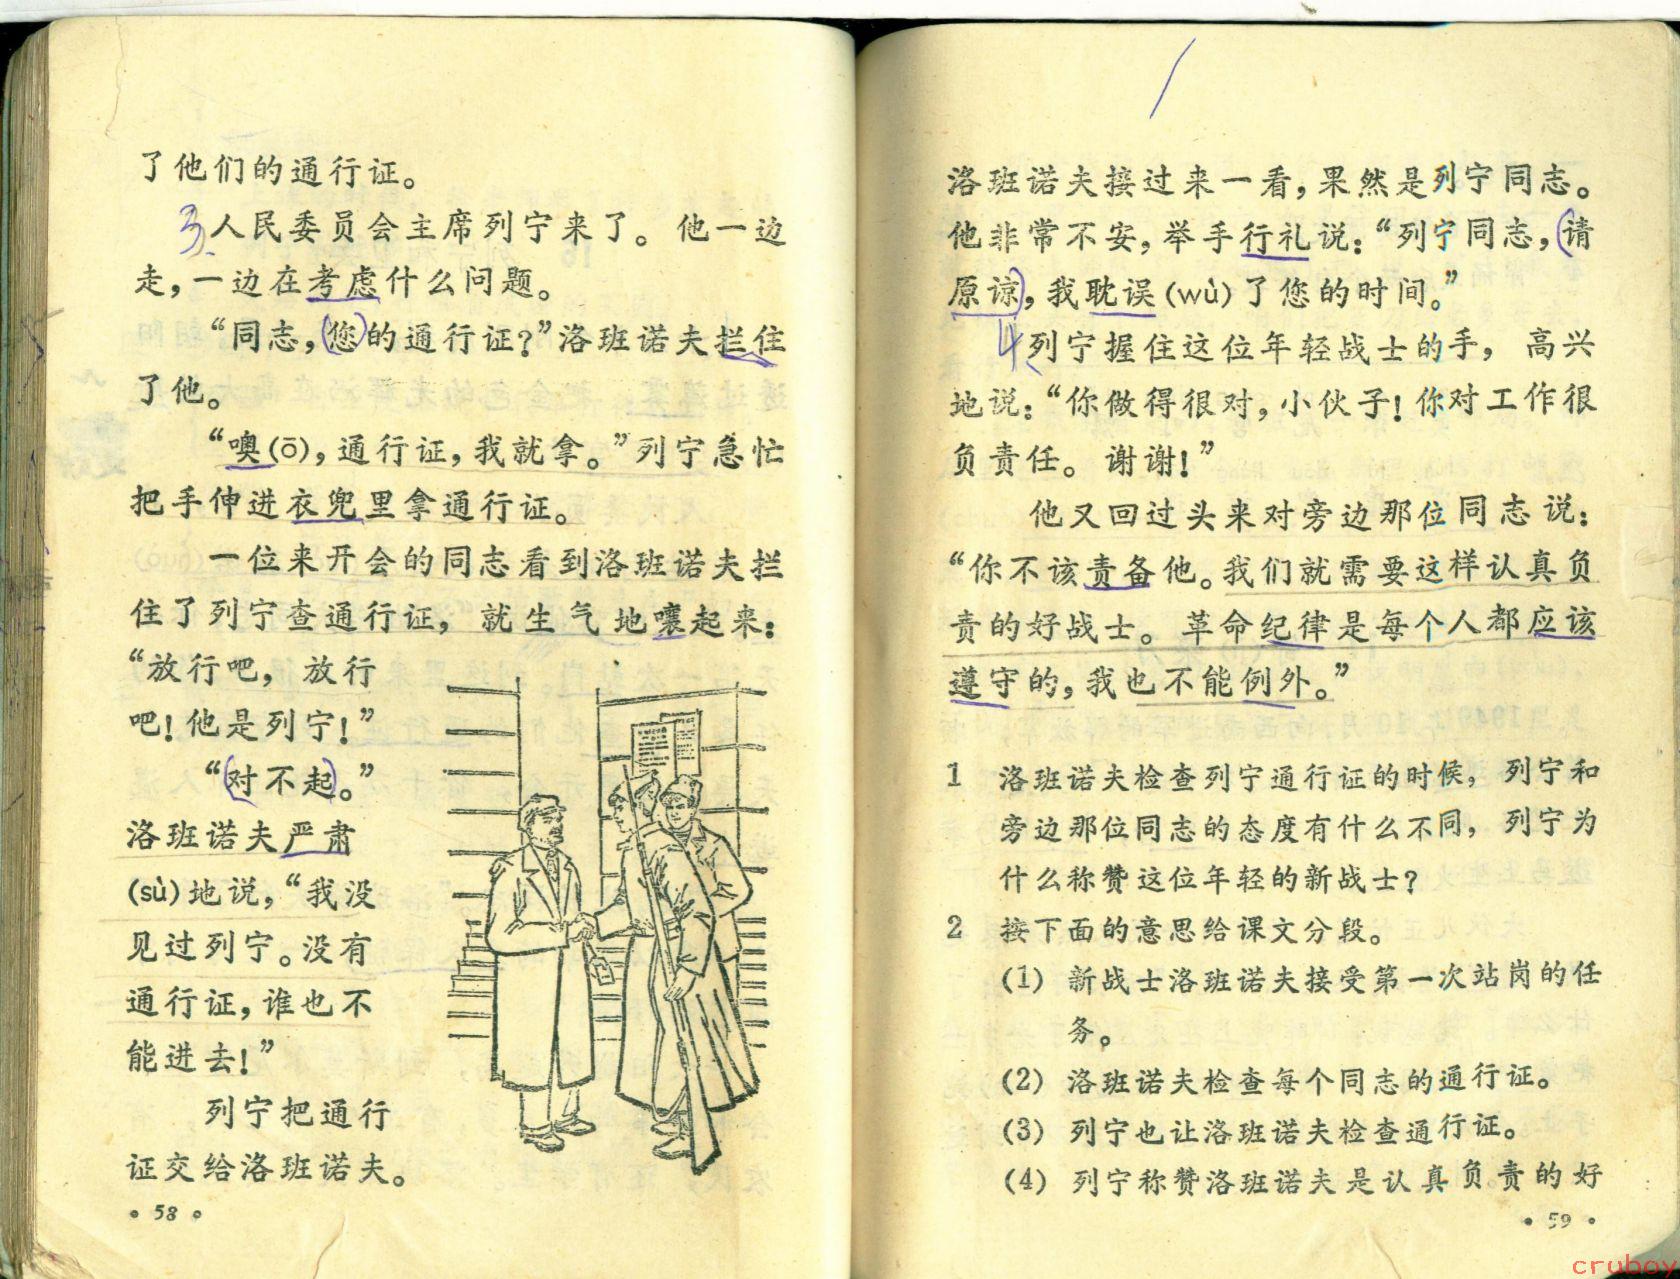 了他们的通行证。
3.人民委员会主席列宁来了。他一边
走，一边在考虑什么问题。
“同志，您的通行证？”洛班诺夫拦住
了他。
“噢(ō)，通行证，我就拿。”列宁急忙
把手伸进衣兜里拿通行证。
一位来开会的同志看到洛班诺夫拦
住了列宁查通行证，就生气地嚷起来：
“放行吧，放行
吧！他是列宁！”
“对不起。”
洛班诺夫严肃
(sù)地说，“我没
见过列宁。没有
通行证，谁也不
能进去！”
列宁把通行
证交给洛班诺夫。
• 58 •
洛班诺夫接过来一看，果然是列宁同志。
他非常不安，举手行礼说：“列宁同志，请
原谅，我耽误(wù)了您的时间。”
4列宁握住这位年轻战士的手，高兴
地说：“你做得很对，小伙子！你对工作很
负责任。谢谢！”
他又回过头来对旁边那位同志说：
“你不该责备他。我们就需要这样认真负
责的好战士。革命纪律是每个人都应该
遵守的，我也不能例外。”
1 洛班诺夫检查列宁通行证的时候，列宁和
旁边那位同志的态度有什么不同，列宁为
什么称赞这位年轻的新战士？
2 按下面的意思给课文分段。
(1) 新战士洛班诺夫接受第一次站岗的任
务。
(2) 洛班诺夫检查每个同志的通行证。
(3) 列宁也让洛班诺夫检查通行证。
(4) 列宁称赞洛班诺夫是认真负责的好
• 59 •
cruboy